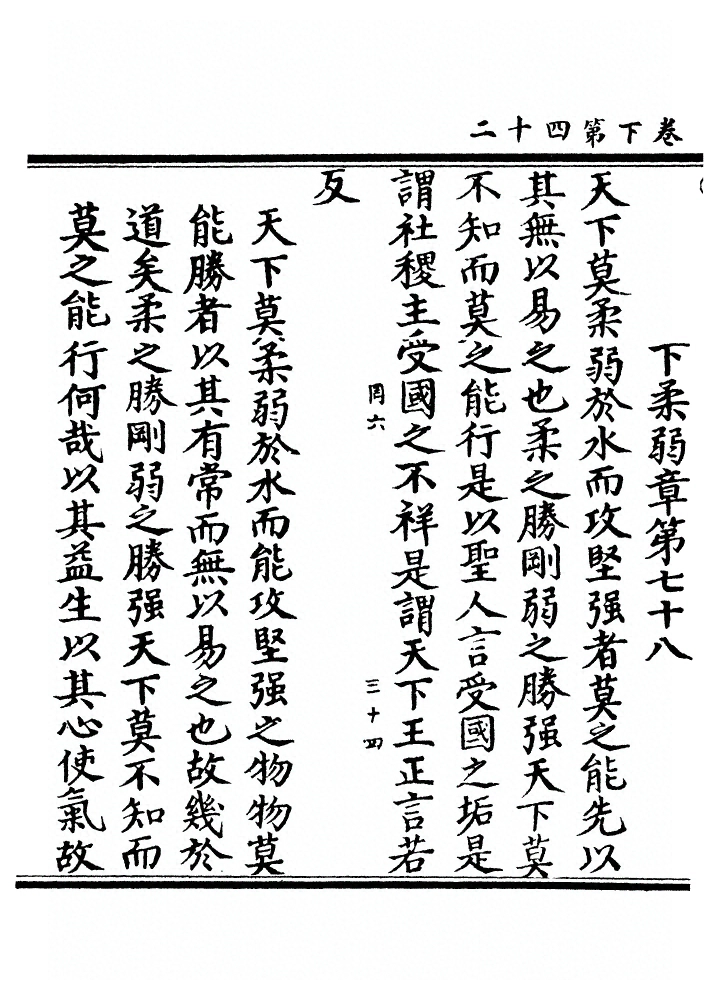 卷下第四十二
下柔弱章第七十八
天下莫柔弱於水而攻堅强者莫之能先以
其無以易之也柔之勝剛弱之勝强天下莫
不知而莫之能行是以聖人言受國之垢是
謂社稷主受國之不祥是謂天下王正言若
罔六
三十四
反
天下莫柔弱於水而能攻堅强之物物莫
能勝者以其有常而無以易之也故幾於
道矣柔之勝剛弱之勝强天下莫不知而
莫之能行何哉以其益生以其心使氣故